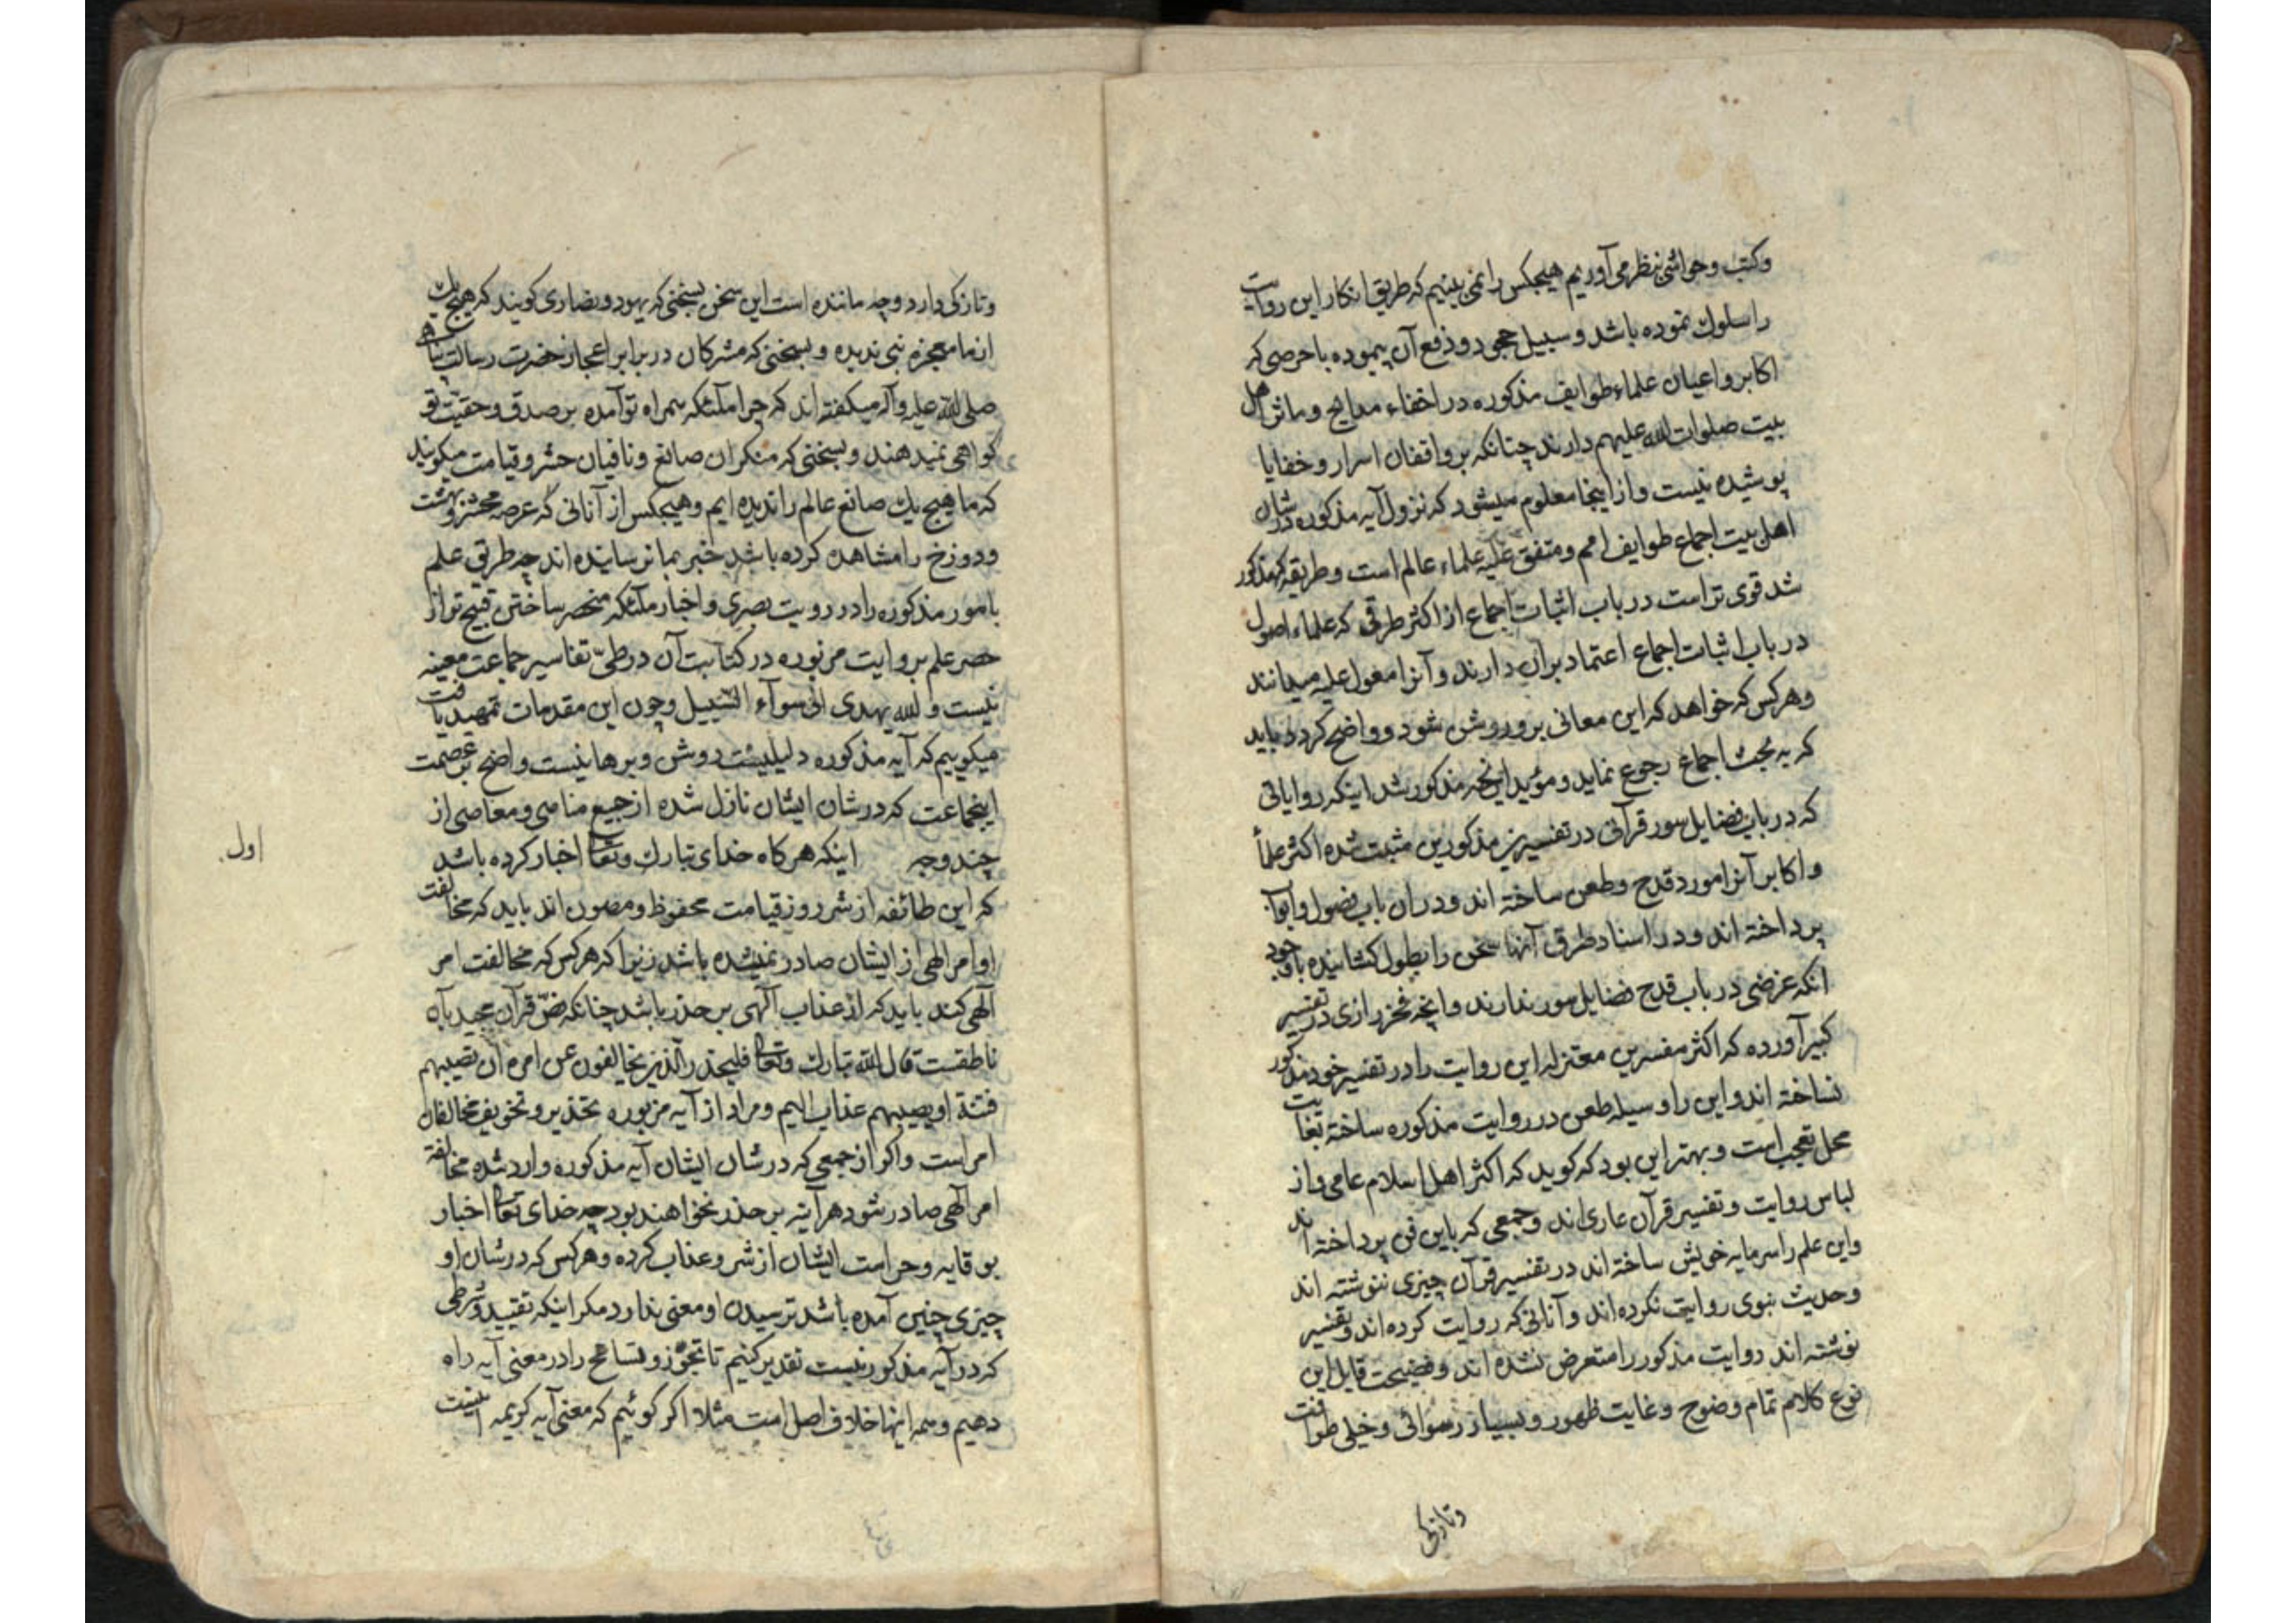 وکتب وحواشی بنظر می آوریم هیچکس را نمی بینیم که طریق انکار این روایت
را سلوک نموده باشد وسبیل جحود ودفع آن پیموده با حرصی که
اکابر واعیان علماء طوایف مذکوره در اخفاء مدایح وماثر اهل
بیت صلوات الله علیهم دارند چنانکه بر واقفان اسرار وخفایا
پوشیده نیست واز اینجا معلوم میشود که نزول آیه مذکوره در شان
اهل بیت اجماع طوایف امم ومتفق علیه علماء عالم است وطریقه که مذکور
شد قوی تر است در باب اثبات اجماع از اکثر طرقی که علماء اصول
در باب اثبات اجماع اعتماد بران دارند وآنرا معول علیه میدانند
وهر کس که خواهد که این معانی برو روشن شود و واضح کردد باید
که به بحث اجماع رجوع نماید ومؤید اینچه مذکور شد اینکه روایاتی
که در باب فضایل سور قرآنی در تفسیرین مذکورین مثبت شده اکثر علمأ
واکابر آنرا مورد قدح وطعن ساخته اند ودران باب فصول وابواب
پرداخته اند ودر اسناد طرق آنها سخن را بطول کشانیده با وجود
انکه غرضی در باب قدح فضایل سور ندارند وانچه فخر رازی در تفسیر
کبیر آورده که اکثر مفسرین معتزله این روایت را در تفسیر خود مذکور
نساخته اند واین را وسیله طعن در روایت مذکوره ساخته بغایت
محل تعجب است وبهتر این بود که کوید که اکثر اهل اسلام عامی واز
لباس روایت وتفسیر قرآن عاری اند وجمعی که باین فن پرداخته اند
واین علم را سرمایه خویش ساخته اند در تفسیر قرآن چیزی ننوشته اند
وحدیث نبوی روایت نکرده اند وآنانی که روایت کرده اند وتفسیر
نوشته اند روایت مذکور را متعرض نشده اند وفضیحت قایل این
نوع کلام تمام وضوح وغایت ظهور وبسیار رسوائی وخیلی طرافت
وتازکی
وتازکی دارد وچه مانند است این سخن بسخنی که یهود ونصاری کویند که هیچ یک
از ما معجزه نبی ندیده وبسخنی که مشرکان در برابر اعجاز حضرت رسالت پناه
صلی الله علیه وآله میکفته اند که چرا ملئکه همراه تو آمده بر صدق وحقیت تو
کواهی نمیدهند وبسخنی که منکران صانع ونافیان حشر وقیامت میکویند
که ما هیچ یک صانع عالم را ندیده ایم وهیچکس از آنانی که عرصه محشر وبهشت
ودوزخ را مشاهده کرده باشد خبر بما نرسانیده اند چه طریق علم
بامور مذکوره را در رویت بصری واخبار ملئکه منحصر ساختن قبیح تر از
حصر علم بروایت مزبوره در کتابت آن در طی تفاسیر جماعت معینه
نیست والله یهدی الی سوآء السبیل وچون این مقدمات تمهید یافت
میکوییم که آیه مذکوره دلیلیست روشن وبرهانیست واضح بر عصمت
اینجماعت که در شان ایشان نازل شده از جمیع مناهی ومعاصی از
چند وجه اینکه هر کاه خدای تبارک وتعالی اخبار کرده باشد
اول
که این طائفه از شر روز قیامت محفوظ ومصون اند باید که مخالفت
اوامر الهی از ایشان صادر نمیشده باشد زیرا که هر کس که مخالفت امر
الهی کند باید که از عذاب الهی بر حذر باشد چنانکه نص قرآن مجید بآن
ناطقست قال الله تبارک وتعالی فلیحذر الذین یخالفون عن امره ان تصیبهم
فتنة او یصیبهم عذاب الیم ومراد از آیه مزبوره تحذیر وتخویف مخالفان
امر است واکر از جمعی که در شان ایشان آیه مذکوره وارد شده مخالفت
امر الهی صادر شود هر آینه بر حذر نخواهند بود چه خدای تعالی اخبار
بوقایه وحراست ایشان از شر وعذاب کرده وهر کس که در شان او
چیزی چنین آمده باشد ترسیدن او معنی ندارد مکر اینکه تقیید وشرطی
که در آیه مذکور نیست تقدیر کنیم تا تجوز وتسامح را در معنی آیه راه
دهیم وهمه اینها خلاف اصل است مثلا اکر کوئیم که معنی آیه کریمه اینست